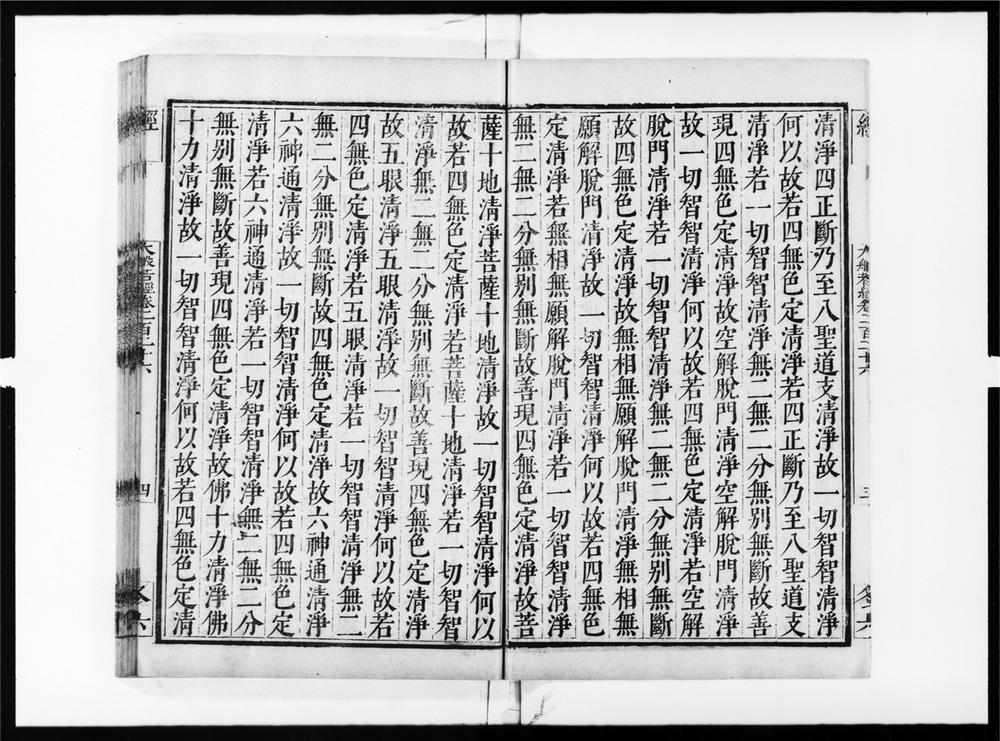 經
大般若經卷二百二十六
三
清淨四正斷乃至八聖道支清淨故一切智智清淨
何以故若四無色定清淨若四正斷乃至八聖道支
清淨若一切智智清淨無二無二分無別無斷故善
現四無色定清淨故空解脫門清淨空解脫門清淨
故一切智智清淨何以故若四無色定清淨若空解
脫門清淨若一切智智清淨無二無二分無別無斷
故四無色定清淨故無相無願解脫門清淨無相無
願解脫門清淨故一切智智清淨何以故若四無色
定清淨若無相無願解脫門清淨若一切智智清淨
無二無二分無別無斷故善現四無色定清淨故菩
薩十地清淨菩薩十地清淨故一切智智清淨何以
故若四無色定清淨若菩薩十地清淨若一切智智
清淨無二無二分無別無斷故善現四無色定清淨
故五眼清淨五眼清淨故一切智智清淨何以故若
四無色定清淨若五眼清淨若一切智智清淨無二
無二分無別無斷故四無色定清淨故六神通清淨
六神通清淨故一切智智清淨何以故若四無色定
清淨若六神通清淨若一切智智清淨無二無二分
無別無斷故善現四無色定清淨故佛十力清淨佛
十力清淨故一切智智清淨何以故若四無色定清
經
大般若經卷二百二十六
四